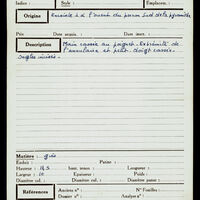 Index: Style: Emplact:
Origine Enviele à l'ouest du perron sud de la pyramide
Prix Date acquis.: Date inv.:
Description Main cassée au poignet. Extrémité de
l'annulaire et petit doigt cassée.
ongles incisés.
Matière: grès
Enduit: Patine:
Hauteur: haut. tenon: Longueur:
Largeur: Epaisseur: Poids:
Diamètre col.: Diamètre cul.: Diamètre pans.:
Références Anciens nos: No Fouilles:
Dossier no: Analyse no: